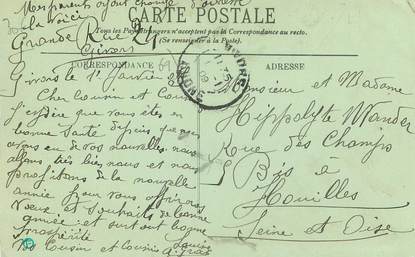 Mes parents ayant changé d'adresse
la voici
Grande Rue 24
Givors
CARTE POSTALE
Tous les Pays étrangers n'acceptent pas la Correspondance au recto.
(Se renseigner à la Poste).
CORRESPONDANCE
ADRESSE
GIVORS
Givors le 1er Janvier 09
Cher Cousin et Cousine
j'espère que vous êtes en
bonne santé depuis que nous
avons eu de vos nouvelles nous
allons très bien nous et nous
profitons de la nouvelle
année pour vous offrir nos
vœux et souhaits de bonne
année et surtout bonne
prospérité
Vos Cousin et Cousine Louise
Monsieur et Madame
Hippolyte Mander
Rue des Champs
Bis à
Houilles
Seine et Oise